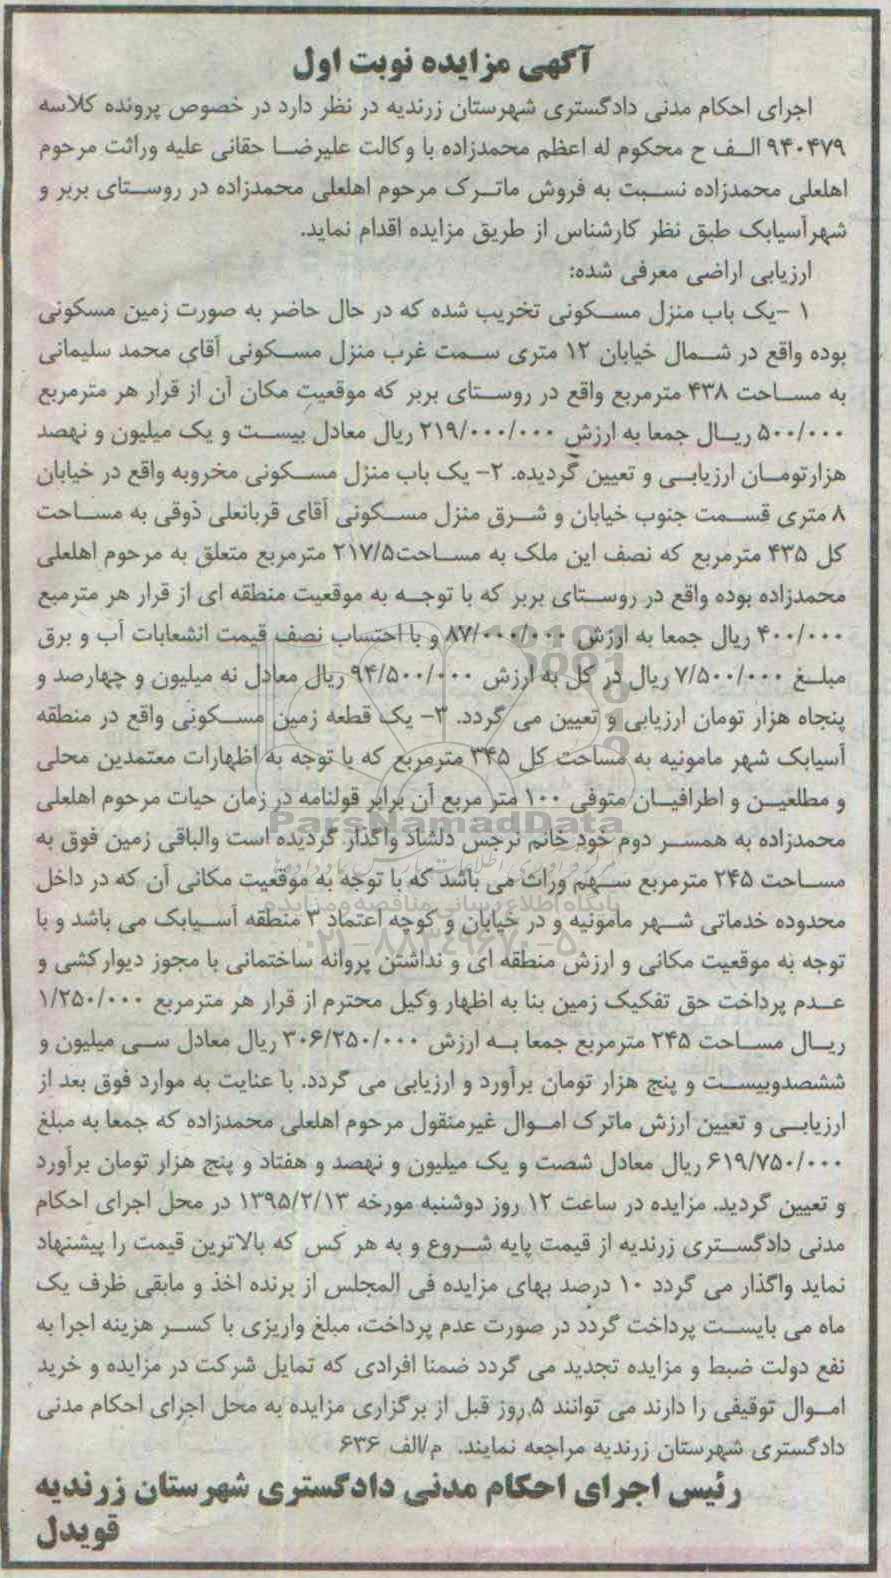 آگهی مزایده نوبت اول
اجرای احکام مدنی دادگستری شهرستان زرندیه در نظر دارد در خصوص پرونده کلاسه
۹۴۰۴۷۹ الف ح محکوم له اعظم محمدزاده با وکالت علیرضا حقانی علیه وراثت مرحوم
اهلعلی محمدزاده نسبت به فروش ماترک مرحوم اهلعلی محمدزاده در روستای بربر و
شهرآسیابک طبق نظر کارشناس از طریق مزایده اقدام نماید.
ارزیابی اراضی معرفی شده:
۱ -یک باب منزل مسکونی تخریب شده که در حال حاضر به صورت زمین مسکونی
بوده واقع در شمال خیابان ۱۲ متری سمت غرب منزل مسکونی آقای محمد سلیمانی
به مساحت ۴۳۸ مترمربع واقع در روستای بربر که موقعیت مکان آن از قرار هر مترمربع
۵۰۰/۰۰۰ ریال جمعا به ارزش ۲۱۹/۰۰۰/۰۰۰ ریال معادل بیست و یک میلیون و نهصد
هزارتومان ارزیابی و تعیین گردیده. ۲- یک باب منزل مسکونی مخروبه واقع در خیابان
۸ متری قسمت جنوب خیابان و شرق منزل مسکونی آقای قربانعلی ذوقی به مساحت
کل ۴۳۵ مترمربع که نصف این ملک به مساحت۲۱۷/۵ مترمربع متعلق به مرحوم اهلعلی
محمدزاده بوده واقع در روستای بربر که با توجه به موقعیت منطقه ای از قرار هر مترمبع
۴۰۰/۰۰۰ ریال جمعا به ارزش ۸۷/۰۰۰/۰۰۰ و با احتساب نصف قیمت انشعابات آب و برق
مبلغ ۷/۵۰۰/۰۰۰ ریال در کل به ارزش ۹۴/۵۰۰/۰۰۰ ریال معادل نه میلیون و چهارصد و
پنجاه هزار تومان ارزیابی و تعیین می گردد. ۳- یک قطعه زمین مسکونی واقع در منطقه
آسیابک شهر مامونیه به مساحت کل ۳۴۵ مترمربع که با توجه به اظهارات معتمدین محلی
و مطلعین و اطرافیان متوفی ۱۰۰ متر مربع آن برابر قولنامه در زمان حیات مرحوم اهلعلی
محمدزاده به همسر دوم خود خانم نرجس دلشاد واگذار گردیده است والباقی زمین فوق به
مساحت ۲۴۵ مترمربع سهم وراث می باشد که با توجه به موقعیت مکانی آن که در داخل
محدوده خدماتی شهر مامونیه و در خیابان و کوچه اعتماد ۳ منطقه آسیابک می باشد و با
توجه به موقعیت مکانی و ارزش منطقه ای و نداشتن پروانه ساختمانی با مجوز دیوارکشی و
عدم پرداخت حق تفکیک زمین بنا به اظهار وکیل محترم از قرار هر مترمربع ۱/۲۵۰/۰۰۰
ریال مساحت ۲۴۵ مترمربع جمعا به ارزش ۳۰۶/۲۵۰/۰۰۰ ریال معادل سی میلیون و
ششصدوبیست و پنج هزار تومان برآورد و ارزیابی می گردد. با عنایت به موارد فوق بعد از
ارزیابی و تعیین ارزش ماترک اموال غیرمنقول مرحوم اهلعلی محمدزاده که جمعا به مبلغ
۶۱۹/۷۵۰/۰۰۰ ریال معادل شصت و یک میلیون و نهصد و هفتاد و پنج هزار تومان برآورد
و تعیین گردید. مزایده در ساعت ۱۲ روز دوشنبه مورخه ۱۳۹۵/۲/۱۳ در محل اجرای احکام
مدنی دادگستری زرندیه از قیمت پایه شروع و به هر کس که بالاترین قیمت را پیشنهاد
نماید واگذار می گردد ۱۰ درصد بهای مزایده فی المجلس از برنده اخذ و مابقی ظرف یک
ماه می بایست پرداخت گردد در صورت عدم پرداخت، مبلغ واریزی با کسر هزینه اجرا به
نفع دولت ضبط و مزایده تجدید می گردد ضمنا افرادی که تمایل شرکت در مزایده و خرید
اموال توقیفی را دارند می توانند ۵ روز قبل از برگزاری مزایده به محل اجرای احکام مدنی
دادگستری شهرستان زرندیه مراجعه نمایند. م/الف ۶۳۶
رئیس اجرای احکام مدنی دادگستری شهرستان زرندیه
قویدل
ParsNamadData
پایگاه اطلاع رسانی مناقصه و مزایده
۰۲۱-۸۸۳۴۹۶۷۰-۵